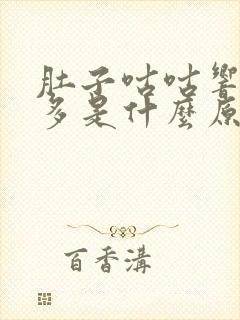 肚子咕咕響
多是什麼原
百香溝